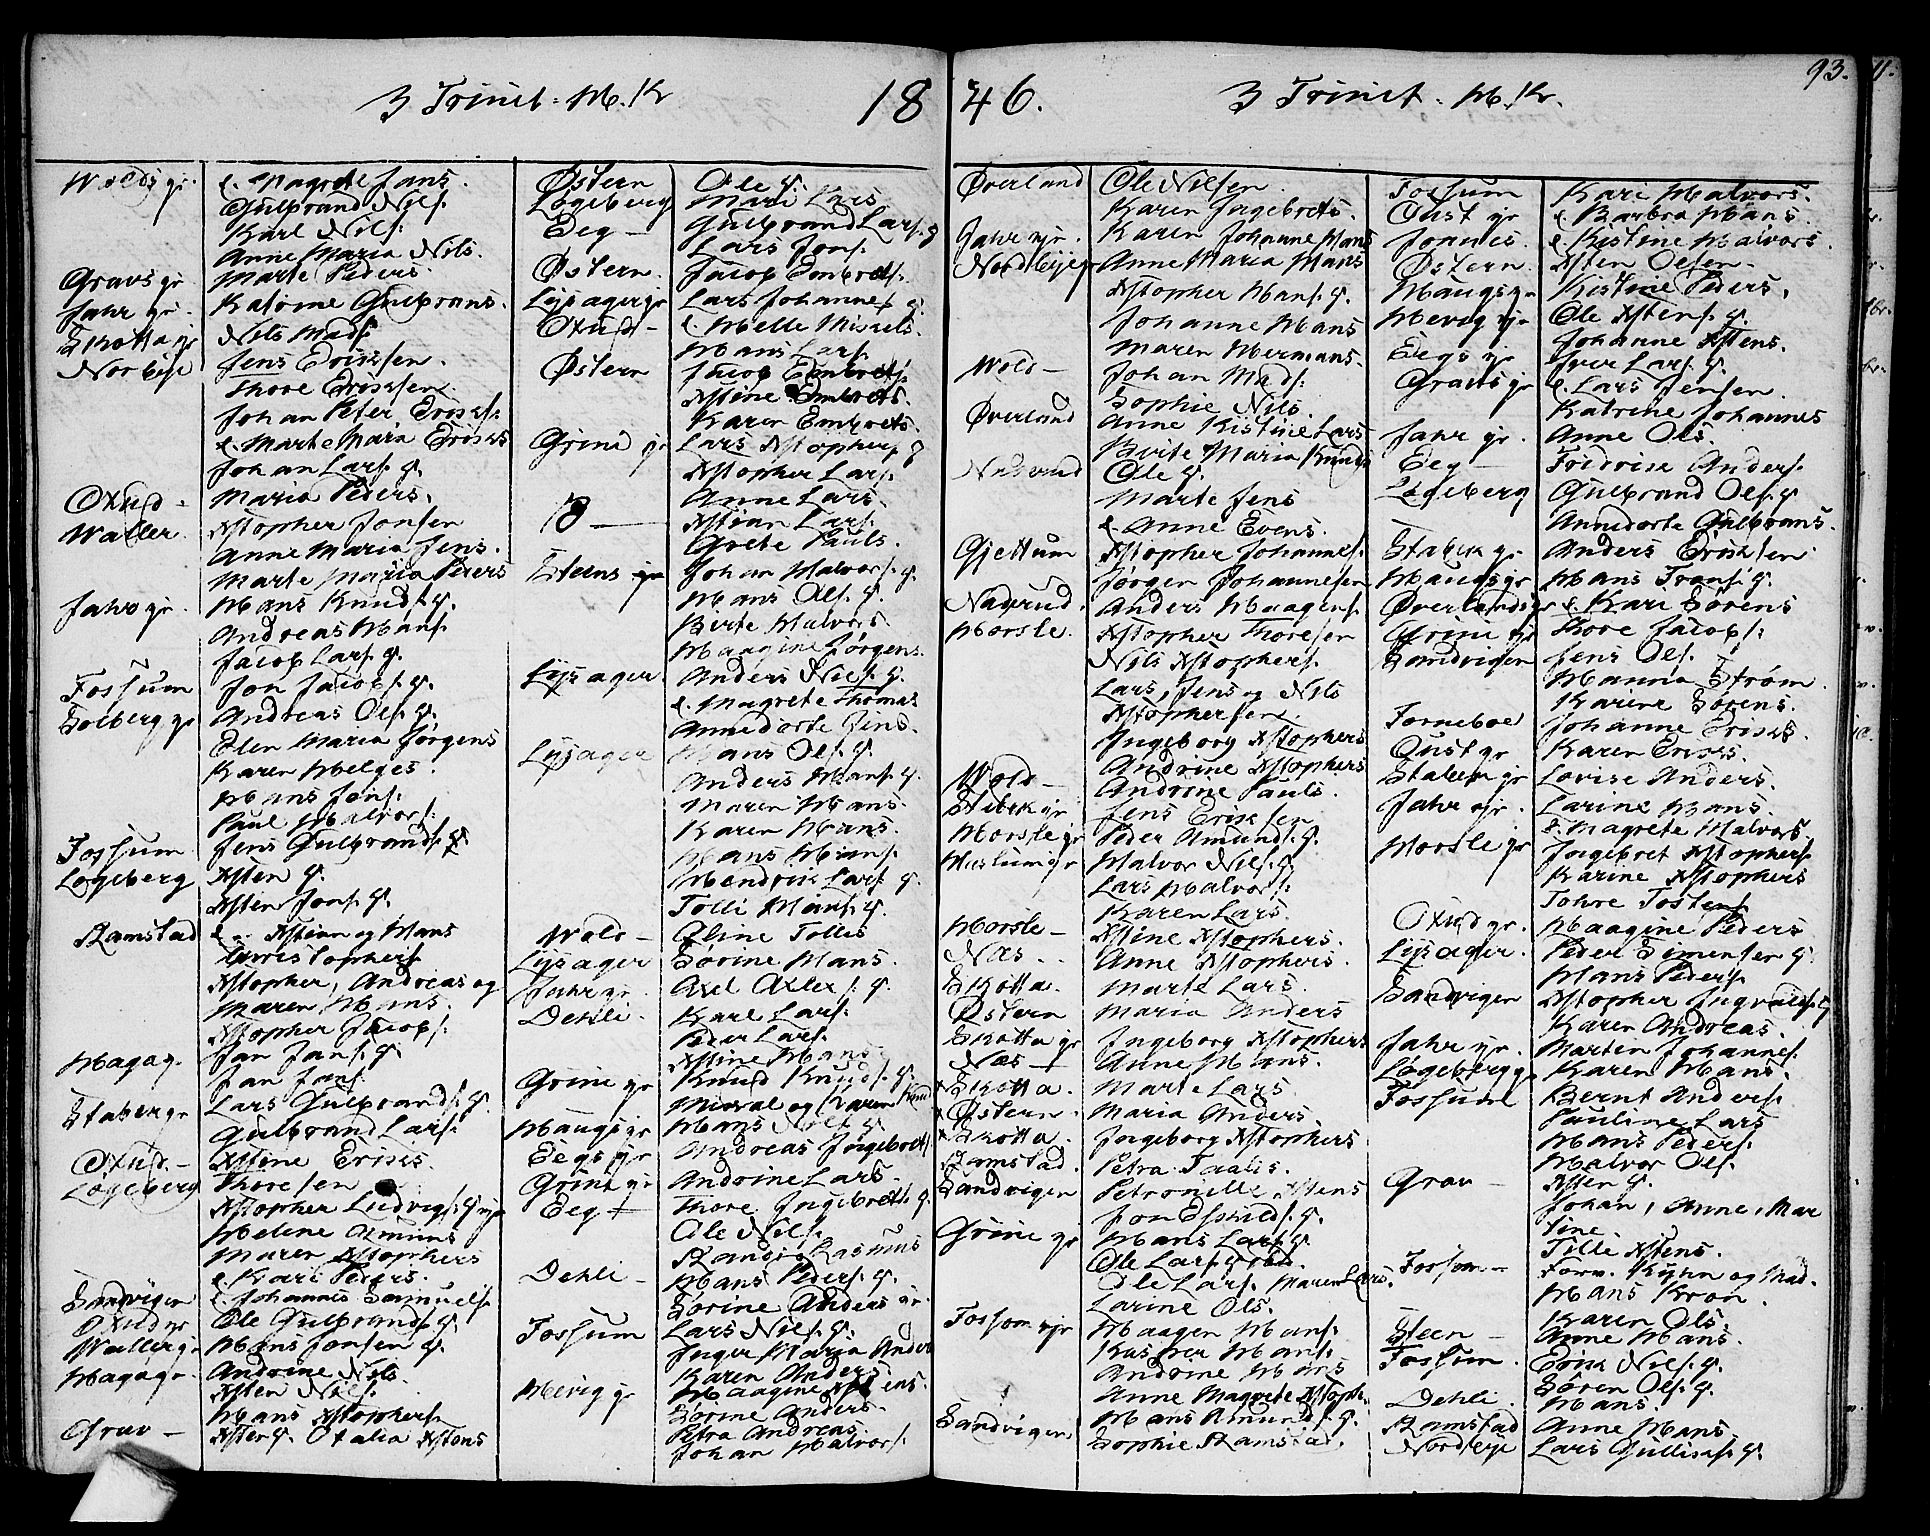 3 Trinit: H. Kr
1846.
3 Trinit. H. Kr.
93.
Wolds gr. e. Magrete Jans.
Gulbrand Nils.
Karl Nils:
Anne Maria Nils.
Gravs gr Marte Peders.
Jahr gr. Katrine Gulbrans.
Skotta gr Nils Mads
Norbye Jens Eriksen.
Thore Eriksen.
Johan Peter Eriks:
e. Marte Maria Eriks
Johan Lars. G.
Oxud - Maria Peders.
Waller. Xstopher Jonsen
Anne Maria Jens.
Marte Maria Peders
Jahr gr. Hans Knuds. G.
Andreas Hans.
Jacob Lars. G.
Fossum Jon Jacobs. G.
Solberg gr Andreas Ols. G.
Elen Maria Jørgens
Karen Helges.
Hans Jons:
Paul Halvors.
Fossum Jens Gulbrands. G.
Løgeberg Xsten G.
Xsten Jons. G.
Ramstad e. Xstian og Hans
Christophers
Xstopher, Andreas og
Maren Hans.
Xstopher Jacobs.
Hagag. Jan Jans. G.
Jan Jans.
Staber gr Lars Gulbrands. G.
Gulbrand Lars.
Oxud - Xstine Eriks.
Løgeberg Thoresen
Xstopher Ludvigs. G
Helene Amuns
Maren Xstophers
e. Kari Peders.
Sandvigen e. Johannes Samuels.
Oxud gr Ole Gulbrands. G.
Waller gr Hans Jonsen G.
Hagagr. Andrine Nils.
Xsten Nils.
Hans Xstophers.
Grav - Xsten G. Otalia Xstens
Østern Ole G.
Løgeberg Mari Lars
Eeg - Gulbrand Lars. G
Lars Jons.
Østern. Jacob Embrets.
Lysager gr Lars Johannes. G.
Oxud - e. Helle Mikkels.
Hans Lars.
Østern Jacob Embrets.
Xstine Embrets.
Karen Embrets
Grini gr Lars Xstophers G
Xstopher Lars.
Anne Lars.
Xstian Lars.
Grete Pauls.
Steens gr Johan Halvors. G.
Hans Ols. G.
Birte Halvors
Haagine Jørgens.
Lysager. Anders Nils. G.
e. Magrete Thomas
Annedorte Jens.
Lysager Hans Ols. G.
Anders Hans. G.
Maren Hans.
Karen Hans.
Hans Hans.
Hendrik Lars. G.
Tolli Hans. G.
Wold - Oline Tollis
Lysager Sorine Hans.
Jahr gr. Axel Axels. G.
Dehli. Karl Lars.
Peder Lars.
Xstine Hans
Grini gr Knud Knuds. G.
Mikkal og Karen Knud
Haugs gr Hans Nols G
Eegs gr Andreas Ingebrets
Grini gr Andrine Lars.
Eeg + Thore Ingebrets G.
Ole Nils.
Randi Rasmus
Dehli - Hans Peders. G.
Sorine Anders gr.
Fossum Lars Nils. G.
Inger Maria Anders
Karen Anders
Hevig gr Haagine Xstens.
Sørine Anders.
Petra Andreas
Johan Halvors.
Øverland Ole Nilsen.
Karen Ingebrets.
Jahr gr. Karen Johanne Hans
Nordbye gr Anne Maria Hans
Xstopher Hans. G.
Johanne Hans
Maren Hermans.
Wold - Johan Mads.
Sophie Nils.
Øverland Anne Kistine Lars
Birte Maria Knuds
Naderud Ole G.
Marte Jens
e. Anne Evens.
Gjettum Xstopher Johannes.
Jørgen Johannesen
Naderud. Anders Haagens.
Horsle. Xstopher Thoresen
Nils Xstophers.
Lars, Jens og Nils
Xstophersen
Ingeborg Xstophers
Andrine Xstophers
Wold - Andrine Pauls.
Jens Eriksen
Horsle gr Peder Amunds. G.
Muslum gr Halvor Nils. G.
Lars Halvors.
Karen Lars.
Horsle - Xstine Xstophers.
Næs.. Anne Xstophers.
Skotta. Marte Lars.
Østern Maria Anders
Skotta gr Ingeborg Xstophers
Næs - Anne Hans.
Skotta. Marte Lars
Østern. Maria Anders
Skotta. Ingeborg Xstophers
Ramstad. Petra Taalis.
Sandvigen Petronille Xstens
Jon Eskilds. G.
Grini gr Hans Lars. G
Ole Lars.
Ole Lars. Maren Lars.
Larine Ols.
Fossom gr Haagen Hans.
Kasper Hans.
Andrine Hans
Anne Magrete Xstoph.
Sandvigen Hans Amunds. G.
Sophie Ramstad.
Fossum Kari Halvors.
Oust gr e. Barbra Hans.
Jonnis. e. Kistine Halvors.
Østern. Xsten Olsen
Haugs gr Kistine Peders.
Hevig gr Ole Xstens. G.
Johanne Xstens.
Eegs gr Iver Lars. G.
Gravs gr e. Lars Jensen
Katrine Johannes
Jahr gr. Anne Ols.
Eeg - Fredrik Anders.
Løgeberg Gulbrand Ols. G
Annedorte Gulbrans.
Stabek gr Anders Eriksen
Haugs gr Hans Frans. G.
Øverlands gr e. Kari Sørens
Grini gr Thore Jacobs.
Sandvigen Jens Ols.
Hanna Strøm.
Karine Sørens.
Torneboe Johanne Eriks.
Oust gr Karen Eriks.
Staber gr Lovise Anders.
Jahr gr. Larine Hans.
e. Magrete Halvors.
Horsle gr Ingebret Xstophers
Karine Xstophers
Tohre Tostens
Oxud gr. Haagine Peders
Lysager. Peder Simensen G.
Hans Peders
Sandvigen Xstopher Ingvalds. G
Karen Andreas.
Jahr gr. Martin Johannes.
Løgeberg gr Karen Hans.
Fossum Bernt Anders.
Pauline Lars
Hans Peders.
Halvor Ols.
Grav - Xsten G.
Johan, Anne, Mar
tine
Tilli Xstens.
Fossom - Forv. Kyhn og Mad.
Hans Kron.
Karen Ols.
Steen - Anne Hans.
Fossum. Erik Nils. G.
Søren Ols. G.
Dehli. Hans.
Ramstad Anne Hans
Nordbye Lars Gullikss. G.